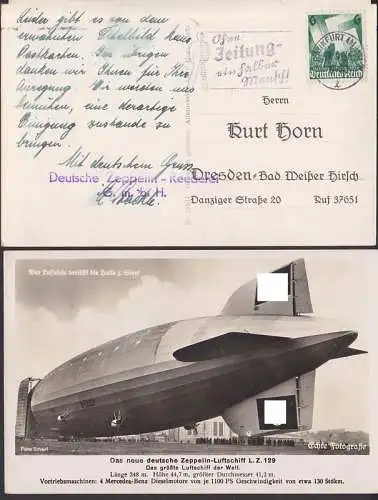 Leider gibt es von dem
erwähnten Schelbild keine
Postkarten. Im übrigen
danken wir Ihnen für Ihre
Anregung. Wir werden uns
bemühen, eine derartige
Einigung zustande zu
bringen.
Mit deutschem Gruss
Deutsche Zeppelin-Reederei
G. m. b. H.
Ohne
Zeitung
ein halber
Mensch!
6
Deutsches Reich
Herrn
Kurt Horn
Dresden-Bad Weißer Hirsch
Danziger Straße 20 Ruf 37651
Das Luftschiff verläßt die Halle z. Start
Echte Fotografie
Das neue deutsche Zeppelin-Luftschiff L.Z.129
Das größte Luftschiff der Welt.
Länge 248 m. Höhe 44,7 m, größter Durchmesser 41,2 m.
Vortriebsmaschinen: 4 Mercedes-Benz Dieselmotore von je 1100 PS Geschwindigkeit von etwa 130 Stdkm.